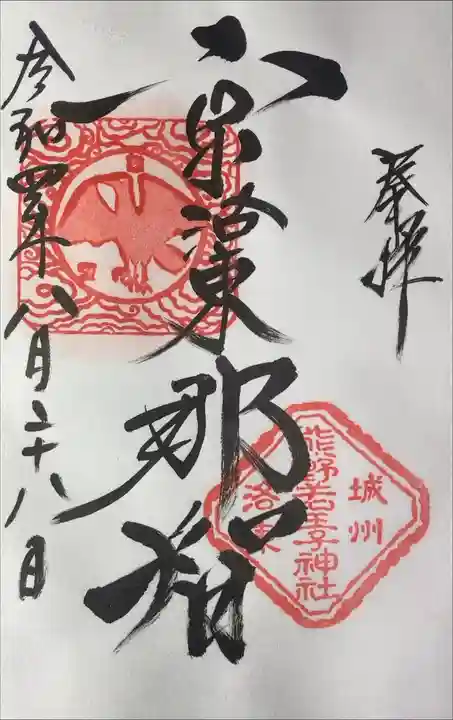 奉拝
京洛東那智
令和四年八月二十八日
城州
熊野若王子神社
洛東